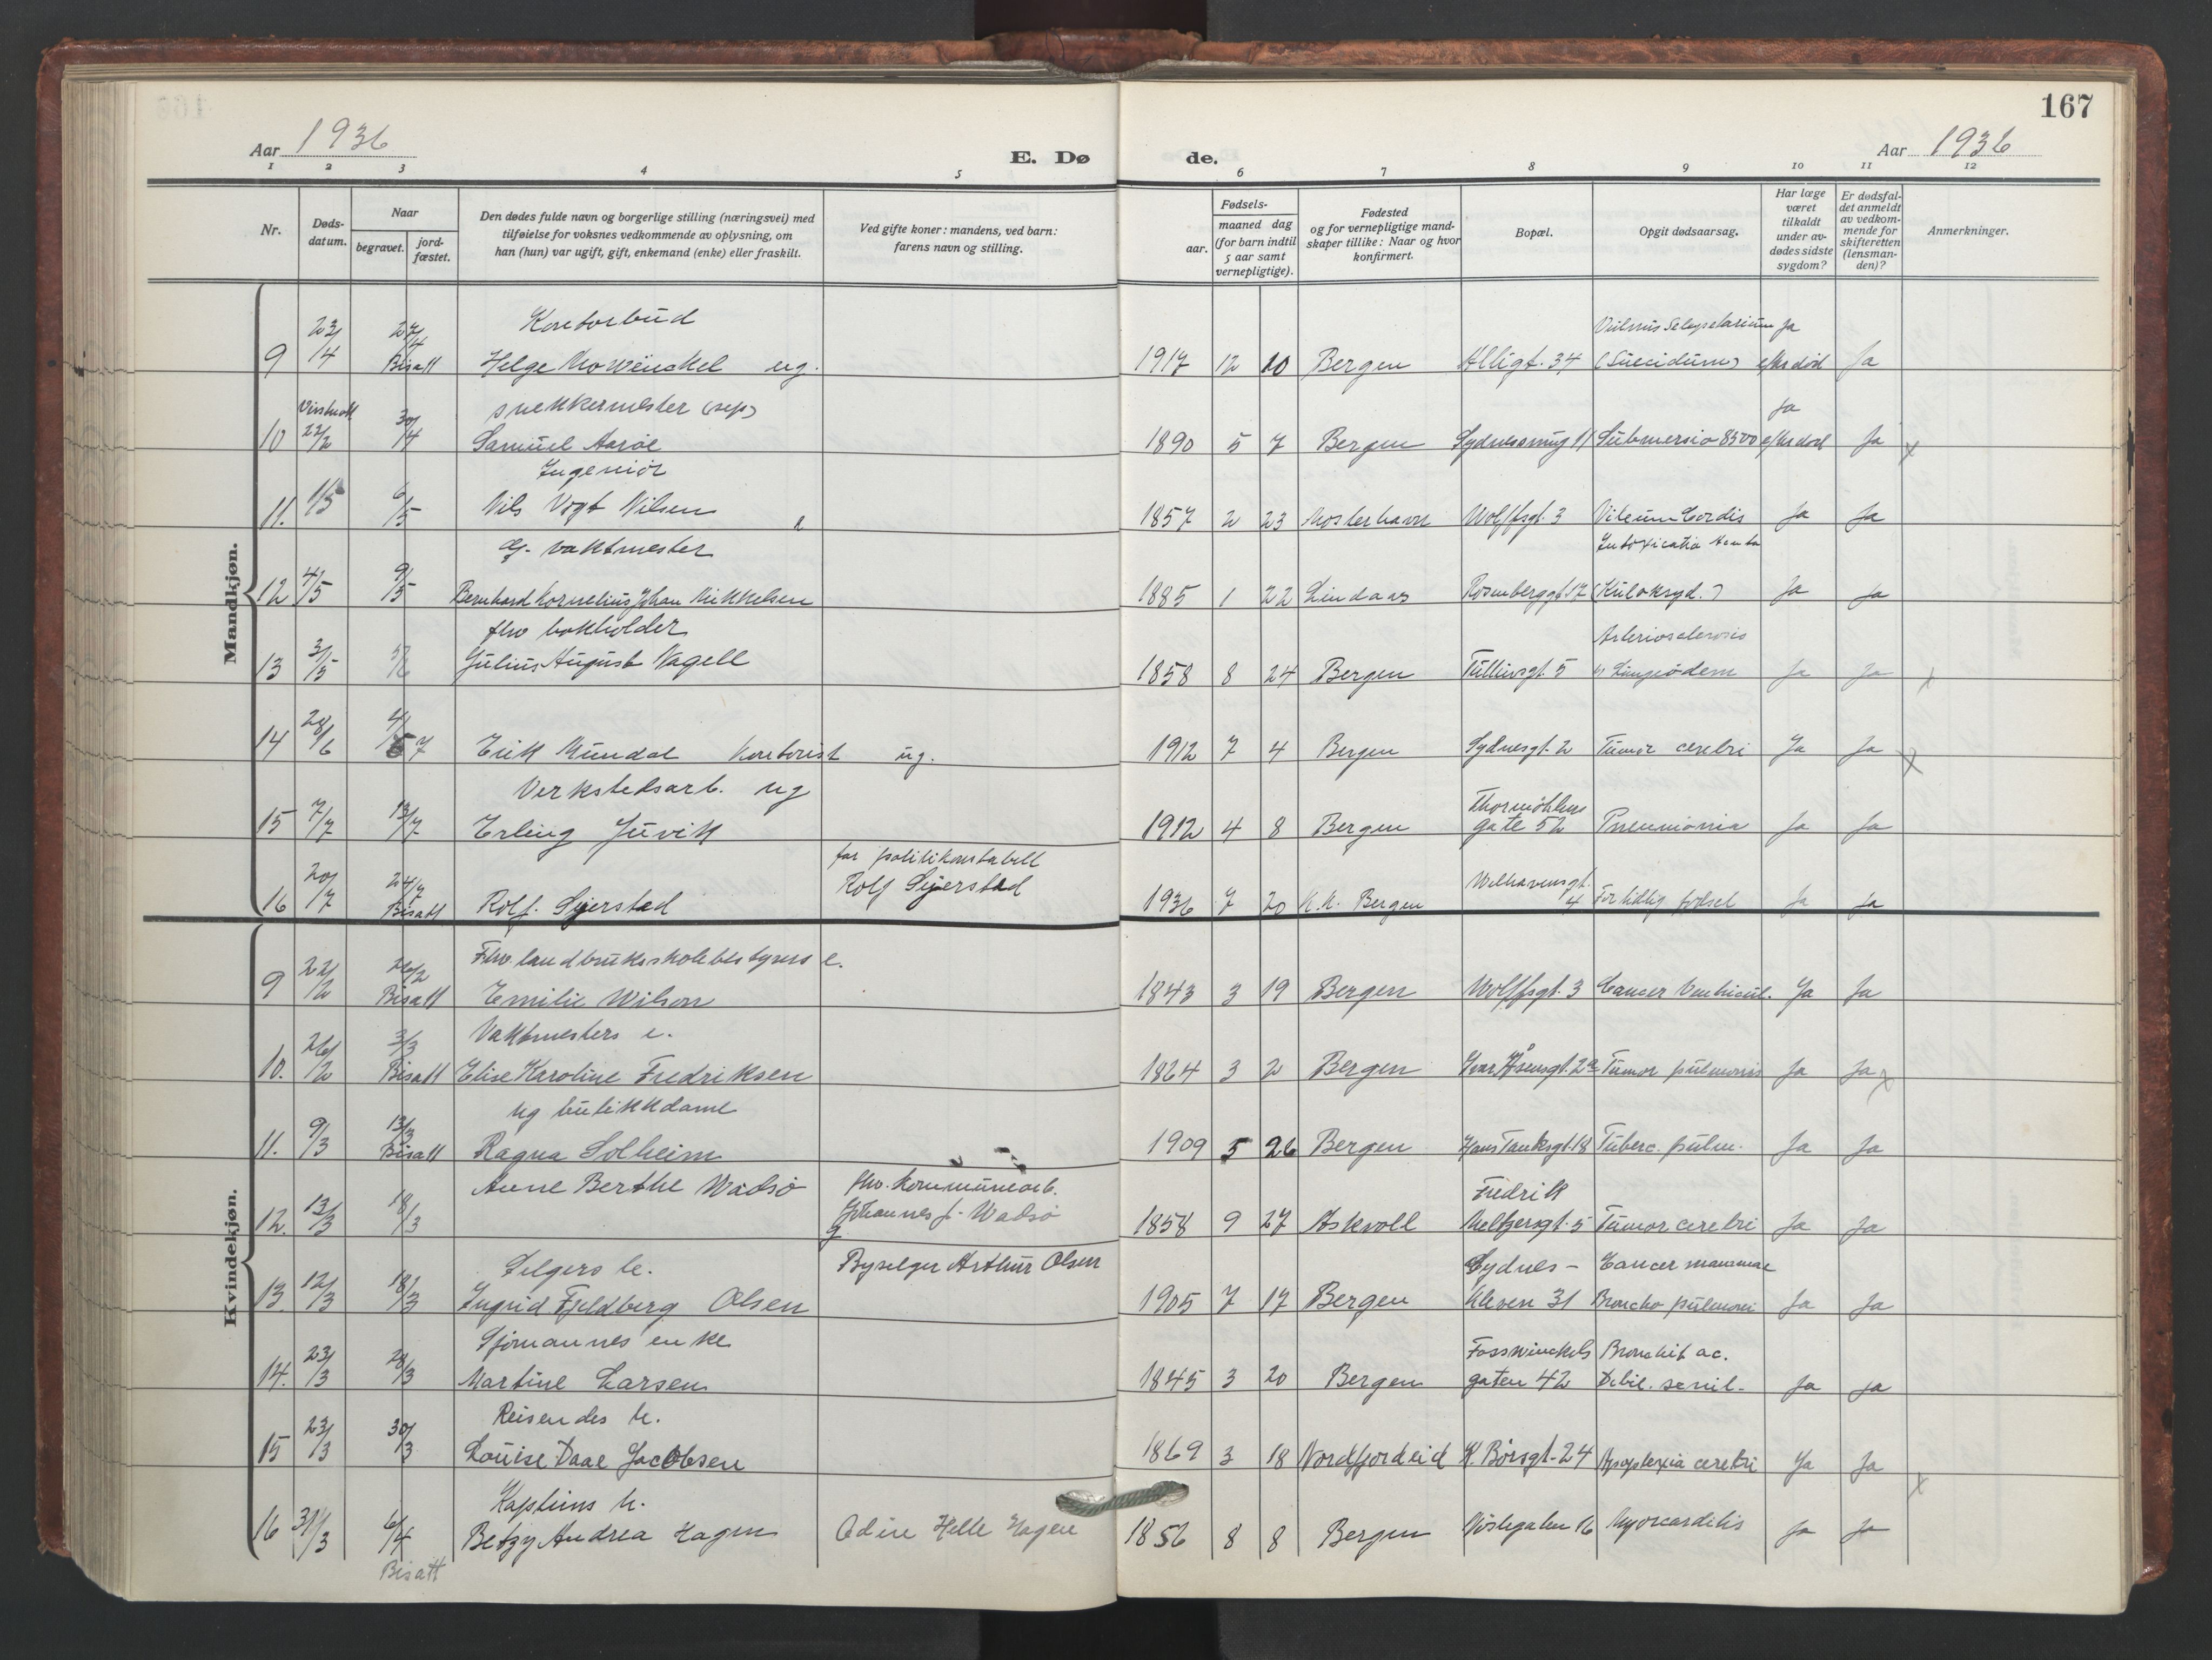 167
Aar 1936
E. Dø
de.
Aar 1936
1 2 3 4 5 6 7 8 9 10 11 12
Nr.
Døds-
datum.
Naar
begravet.
jord-
fæstet.
Den dødes fulde navn og borgerlige stilling (næringsvei) med
tilføielse for voksnes vedkommende av oplysning, om
han (hun) var ugift, gift, enkemand (enke) eller fraskilt.
Ved gifte koner: mandens, ved barn:
farens navn og stilling.
Fødsels-
aar.
maaned dag
(for barn indtil
5 aar samt
vernepligtige).
Fødested
og for vernepligtige mand-
skaper tillike: Naar og hvor
konfirmert.
Bopæl.
Opgit dødsaarsag.
Har læge
været
tilkaldt
under av-
dødes sidste
sygdom?
Er dødsfal-
det anmeldt
av vedkom-
mende for
skifteretten
(lensman-
den)?
Anmerkninger.
Mandkjøn.
Kontorbud
9 23/4 27/4 Bisatt Helge Mowinckel ug. 1917 12 10 Bergen Alligt. 34 (Suicidum) Ja efter død Ja
snekkermester (sep)
10 22/2 30/4 Samuel Aarøe 1890 5 7 Bergen Submersio Ja efter død Ja x
Ingeniør
11. 1/5 6/5 Nils Vogt Nilsen e 1857 2 23 Mosterhavn Wolffsgt. 3 Vitium Cordis Ja Ja
vaktmester
Intoxicatio
12 4/5 9/5 Bernhard Kornelius Johan Mikkelsen 1885 1 22 Lindaas Rosenberggt 17 (Kuloksyd.) Ja Ja
fhv bokholder
Arteriosclerosis
13 3/5 Julius August Nagell 1858 8 24 Bergen Tulliusgt. 5 Lungeødem Ja Ja x
14 28/6 4/7 Erik Mundal kontorist ug. 1912 7 4 Bergen Sydnesgt. 2 Tumor cerebri Ja Ja x
Verkstedsarb. ug
Thormøhlens
15 7/7 13/7 Erling Juvik 1912 4 8 Bergen gate 52 Pneumonia Ja Ja
far politikonstabell
Rolf Sejerstad
Welhavensgt.
16 20/7 24/7 Bisatt Rolf. Sejerstad 1936 7 20 K.K. Bergen 4 For tidlig fødsel Ja Ja
Kvindekjøn.
Fhv landbruksskolebestyrers e.
9 22/2 26/2 Bisatt Emilie Wilson 1843 3 19 Bergen Wolffsgt. 3 Cancer Ventricul. Ja Ja
Vaktmesters e.
10. 26/2 3/3 Bisatt Elise Karoline Fredriksen 1864 3 2 Bergen Ivar Åsensgt. 2a Tumor pulmonis Ja Ja x
ug butikkdame
11. 9/3 13/3 Bisatt Ragna Solheim 1909 5 26 Bergen Hans Tanksgt. 18 Tuberc. pulm. Ja Ja
Anne Berthe Wadsø fhv. kommunearb.
Fredrik
12. 13/3 18/3 Johannes J. Wadsø 1858 9 27 Askvoll Meltzersgt. 5 Tumor cerebri Ja Ja
g
Selgers h. Byselger Arthur Olsen Sydnes- Cancer mammae
13. 12/3 18/3 Ingrid Fjeldberg Olsen 1905 7 17 Bergen kleven 31 Broncho pulmoni Ja Ja
Sjømannes enke
Fosswinckels Bronchit ac.
14. 23/3 28/3 Martine Larsen 1845 3 20 Bergen gaten 42 Debil. senil. Ja Ja
Reisendes h.
15 23/3 30/3 Louise Daae Jacobsen 1869 3 18 Nordfjordeid K. Børsgt. 24 Apoplexia cerebri Ja Ja x
Kapteins h.
16 31/3 6/4 Betzy Andrea Hagen Odin Helle Hagen 1856 8 8 Bergen Nøstegaten 16 Myocarditis Ja Ja
Bisatt